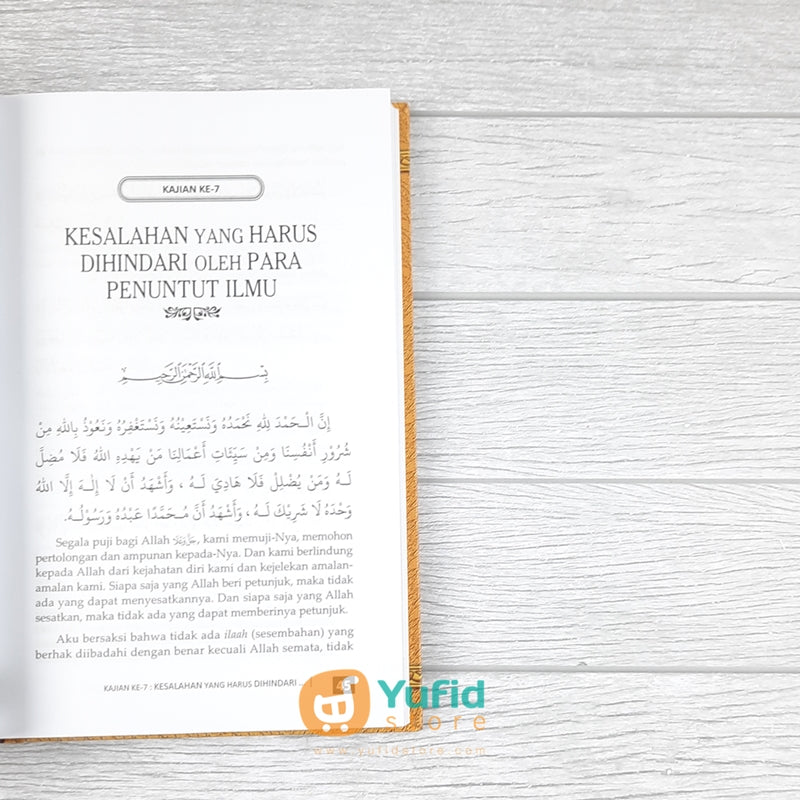 KAJIAN KE-7
KESALAHAN YANG HARUS
DIHINDARI OLEH PARA
PENUNTUT ILMU
بِسْمِ اللَّهِ الرَّحْمَٰنِ الرَّحِيمِ
إِنَّ الْـحَمْدَ لِلّٰهِ نَحْمَدُهُ وَنَسْتَعِيْنُهُ وَنَسْتَغْفِرُهُ وَنَعُوْذُ بِاللهِ مِنْ
شُرُوْرِ أَنْفُسِنَا وَمِنْ سَيِّئَاتِ أَعْمَالِنَا مَنْ يَهْدِهِ اللهُ فَلَا مُضِلَّ
لَـهُ وَمَنْ يُضْلِلْ فَلَا هَادِيَ لَـهُ ، وَأَشْهَدُ أَنْ لَا إِلٰـهَ إِلَّا اللهُ
وَحْدَهُ لَا شَرِيْكَ لَـهُ ، وَأَشْهَدُ أَنَّ مُـحَمَّدًا عَبْدُهُ وَرَسُوْلُـهُ.
Segala puji bagi Allah ﷻ, kami memuji-Nya, memohon
pertolongan dan ampunan kepada-Nya. Dan kami berlindung
kepada Allah dari kejahatan diri kami dan kejelekan amalan-
amalan kami. Siapa saja yang Allah beri petunjuk, maka tidak
ada yang dapat menyesatkannya. Dan siapa saja yang Allah
sesatkan, maka tidak ada yang dapat memberinya petunjuk.
Aku bersaksi bahwa tidak ada ilaah (sesembahan) yang
berhak diibadahi dengan benar kecuali Allah semata, tidak
KAJIAN KE-7 : KESALAHAN YANG HARUS DIHINDARI ... |
45
Yufid
store
www.yufidstore.com